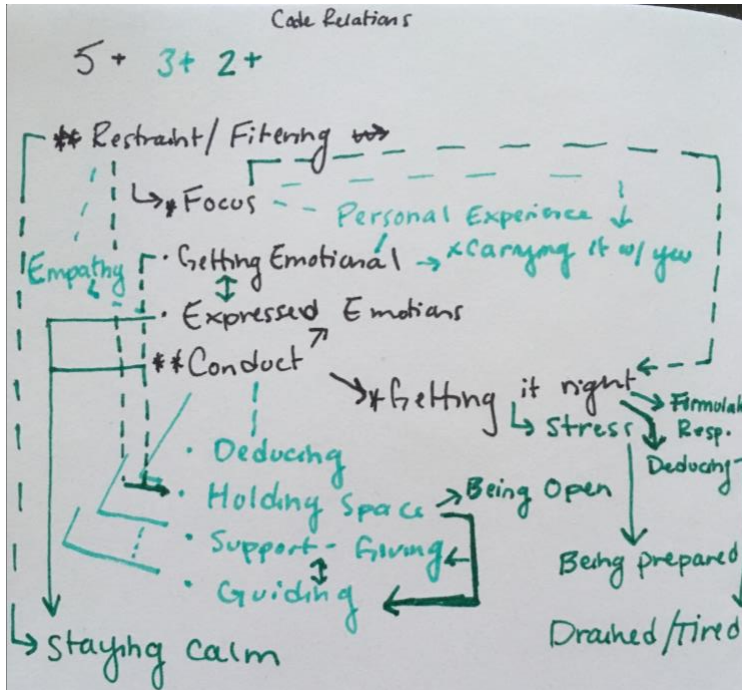 Code Relations
5+ 3+ 2+
** Restraint/Fitering
*Focus
Personal Experience
Empathy
· Getting Emotional
*Carrying it w/ you
· Expressed Emotions
**Conduct
*Getting it right
Stress
Resp.
· Deducing
Deducing
· Holding Space
Being Open
· Support-Giving
· Guiding
Being prepared
Drained/Tired
Staying calm